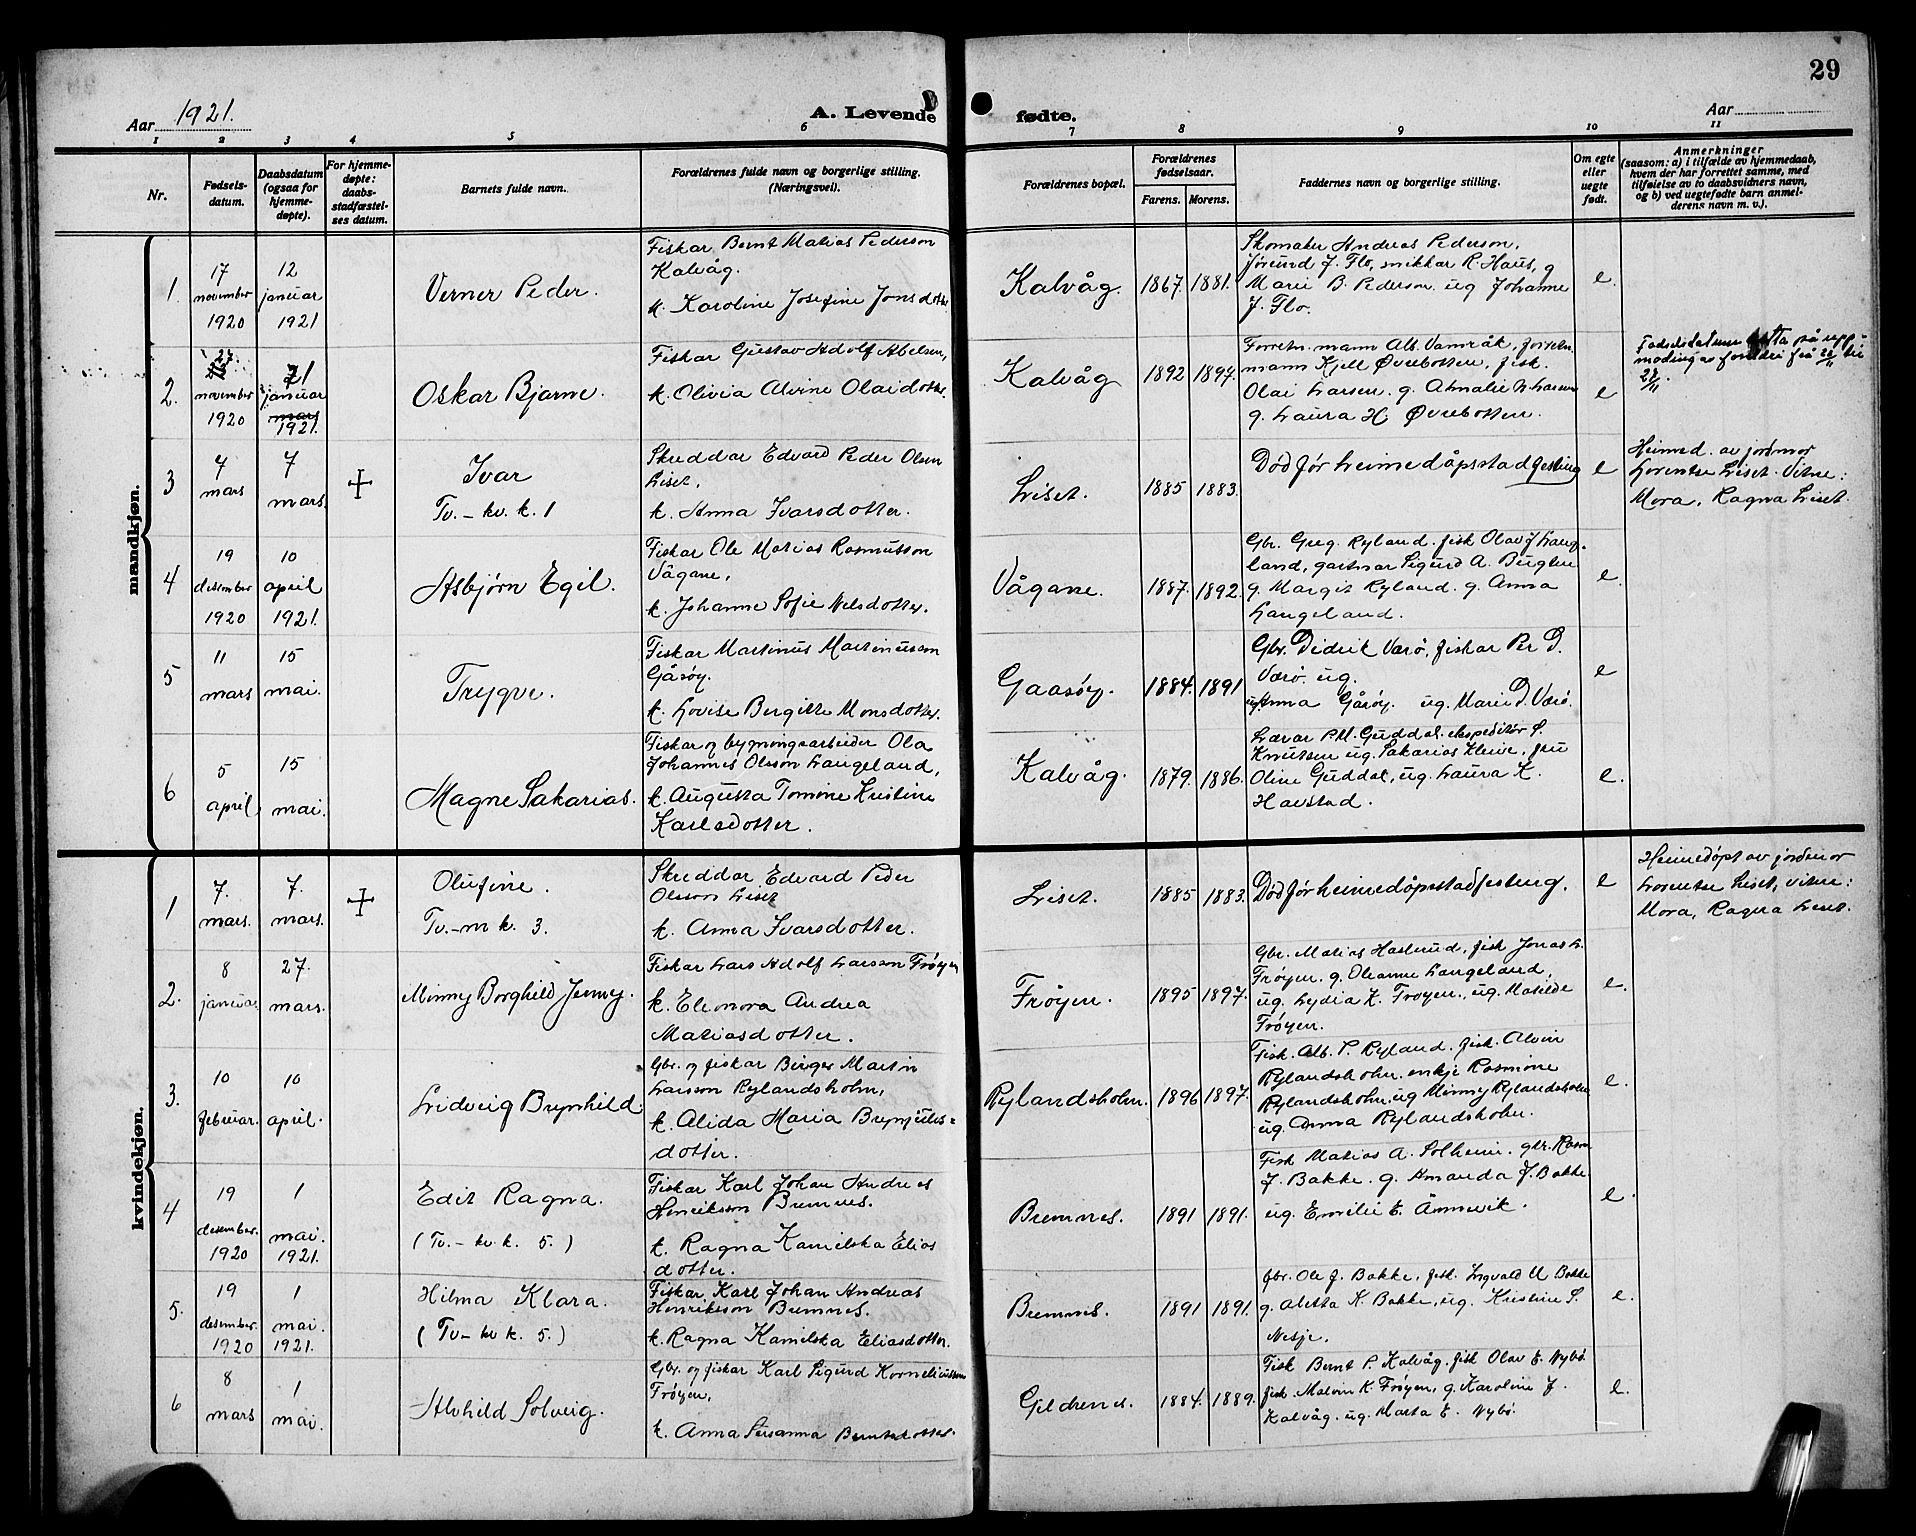 29
Aar 1921.
A. Levende fødte.
Aar
1 2 3 4 5 6 7 8 9 10 11
Nr.
Fødsels-
datum.
Daabsdatum
(ogsaa for
hjemme-
døpte).
For hjemme-
døpte:
daabs-
stadfæstel-
ses datum.
Barnets fulde navn.
Forældrenes fulde navn og borgerlige stilling.
(Næringsvei).
Forældrenes bopæl.
Forældrenes
fødselsaar.
Farens. Morens.
Faddernes navn og borgerlige stilling.
Om egte
eller
uegte
født.
Anmerkninger
(saasom: a) i tilfælde av hjemmedaab,
hvem der har forrettet samme, med
tilføielse av to daabsvidners navn,
og b) ved uegtefødte barn anmel-
derens navn m. v.).
mandkjøn.
1.
17
november
1920
12
januar
1921
Verner Peder.
Fiskar Bernt Matias Pederson
Kalvåg.
k. Karoline Josefine Jonsdotter.
Kalvåg.
1867. 1881.
Skomaker Andreas Pederson,
Jørund J. Flo, snikkar R. Haus, g
Marie B. Pederson ug Johanne
J. Flo.
e.
2.
27
november
1920
januar
mars
1921.
Oskar Bjarne.
Fiskar Gustav Adolf Abelsen,
k. Olivia Alvine Olaidotter.
Kalvåg
1892 1897.
Forretn. mann Alb. Vamråk, forretn.
mann Kjell Øvrebotten, fisk.
Olai Larsen. g. Amalie N. Larsen
g. Laura H. Øvrebotten.
e
3
7
mars
7
mars.
Ivar
Tv. - kv. k. 1
Skreddar Edvard Peder Olsen
Liset,
k. Anna Ivarsdotter.
Liset.
1885 1883.
Død før heimedåpsstadfesting
e
Heimed. av jordmor
Lorentse Liset. Vitne:
Mora, Ragna Liset.
4
19
desember
1920
10
april
1921.
Asbjørn Egil.
Fiskar Ole Matias Rasmusson
Vågane,
k. Johanne Sofie Nilsdotter.
Vågane.
1887. 1892.
Gbr. Greg. Ryland. fisk Olav J Lange-
land, gartnar Sigurd A.
g. Margit Ryland. g. Anna
Langeland.
e.
5
11
mars
15
mai.
Trygve.
Fiskar Martinus Martinusson
Gåsøy.
k. Lovise Bergitte Monsdotter.
Gaasøy.
1884. 1891
Gbr. Didrik Værø, fiskar Per D.
Værø. ug.
Anna Gåsøy. ug. Marie D. Værø.
e
6
5
april
15
mai.
Magne Sakarias.
Fiskar og bygningsarbeider Ola
Johannes Olsson Langeland,
k. Augusta Tomine Kristine
Karlsdotter.
Kalvåg.
1879. 1886.
Lærar P. M. Guddal. ekspeditør S.
Knutsen ug. Sakarias Kleive, fru
Oline Guddal, ug. Laura K.
Havstad.
e.
kvindekjøn.
1
7.
mars.
7.
mars.
Olufine.
Tv.-m k. 3.
Skreddar Edvard Peder
Olsson Liset
k. Anna Ivarsdotter.
Liset.
1885 1883.
Død før heimedåpsstadfesting.
e
Heimedøpt av jordmor
Lorentse Liset, vitne:
Mora, Ragna Liset.
2.
8
januar.
27.
mars.
Minny Borghild Jenny.
Fiskar Lars Adolf Larsson Frøyen
k. Eleonora Andrea
Matiasdotter.
Frøyen.
1895 1897.
Gbr. Matias Hasterud, fisk Jonas L.
Frøyen. g. Oleanne Langeland,
ug. Lydia K. Frøyen., ug. Matilde
Frøyen.
e.
3.
10
februar.
10
april.
Lidveig Brynhild.
Gbr. og fiskar Birger Martin
Larsson Rylandsholm,
k. Alida Maria Brynjulvs-
dotter.
Rylandsholm.
1896 1897.
Fisk. Alb. P. Ryland. fisk. Alvin
Rylandsholm. enkje Rasmine
Rylandsholm. ug Minny Rylandsholm
ug. Anna Rylandsholm.
e.
4
19
desember.
1920
1
mai.
1921.
Edit Ragna.
(Tv. - kv. k. 5.)
Fiskar Karl Johan Andreas
Henriksson Bremnes.
k. Ragna Kamilska Elias
dotter.
Bremnes.
1891 1891.
Fisk Matias A. Solheim. gbr. Rasm
J. Bakke. g. Amanda J. Bakke.
ug. Emilie E. Åmnevik.
e.
5.
19
desember.
1920
1
mai.
1921.
Hilma Klara.
(Tv - kv k. 5.)
Fiskar Karl Johan Andreas
Henriksson Bremnes.
k. Ragna Kamilska Eliasdotter.
Bremnes.
1891 1891.
gbr. Ole J. Bakke, fisk. Ingvald U Bakke
g. Aletta K. Bakke, ug. Kristine S.
Nesje.
e.
6
8
mars
1
mai.
Alvhild Solveig.
Gbr. og fiskar Karl Sigurd Korneliussen
Frøyen,
k. Anna Susanna Berntsdotter.
Geldrenes.
1884. 1889.
Fisk Bernt P. Kalvåg. fisk Olav E. Nybø.
fisk. Malvin K. Frøyen, g. Karoline J.
Kalvåg. ug. Marta E. Nybø.
e.